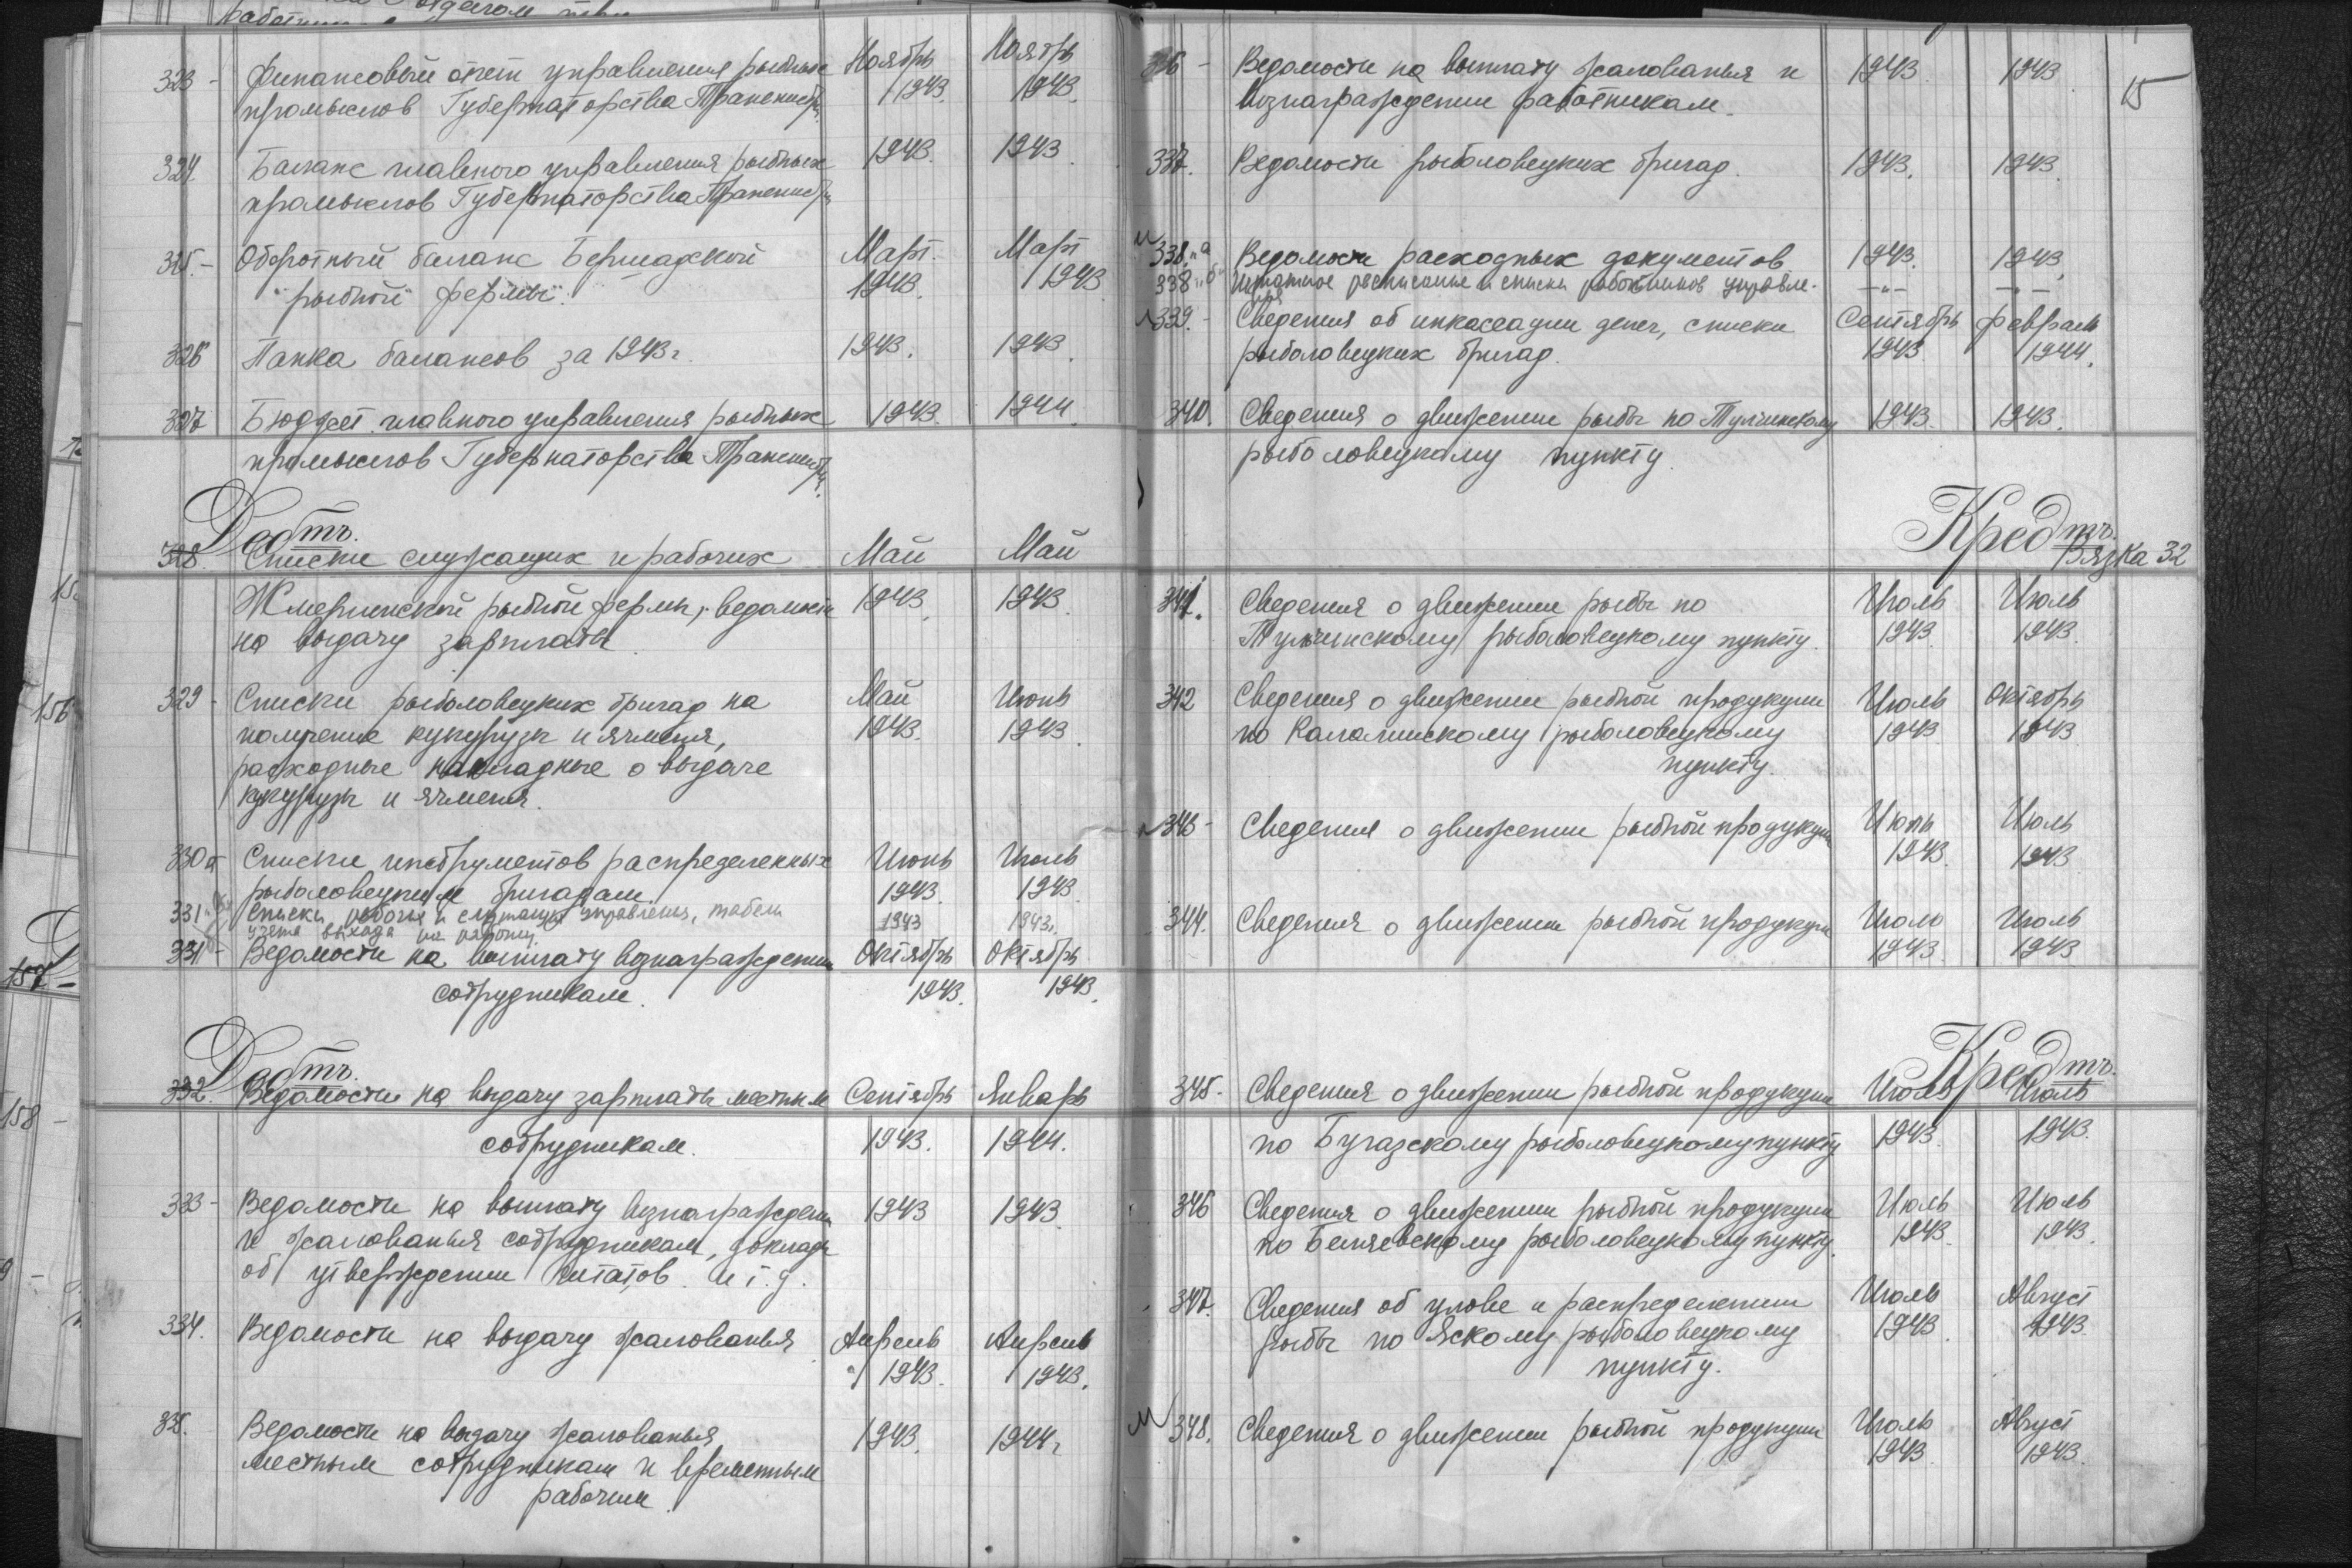 323 - Финансовый отчет управления рыбных Ноябрь Ноябрь
промыслов Губернаторства Транснистрия. 1943. 1943.
324. Баланс главного управления рыбных 1943. 1943.
промыслов Губернаторства Транснистрия
325. - Оборотный баланс Бершадской Март Март
"рыбной фермы". 1943. 1943
326 Папка балансов за 1943 г. 1943. 1943.
327 Бюджет главного управления рыбных 1943. 1944.
промыслов Губернаторства Транснистрия.
Дебтъ.
328. Списки служащих и рабочих Май Май
Жмеринской рыбной фермы, ведомости 1943. 1943.
на выдачу зарплаты.
329 - Списки рыболовецких бригад на Май Июнь
получение кукурузы и ячменя, 1943. 1943.
расходные накладные о выдаче
кукурузы и ячменя.
330 а Списки инструментов распределенных Июнь Июль
рыболовецким бригадам. 1943. 1943.
331 Списки рабочих и служащих управления, табели 1943 1943г.
учета выхода на работу.
331 - Ведомости на выплату вознаграждения Октябрь Октябрь
сотрудникам. 1943. 1943.
Дебтъ.
332. Ведомости на выдачу зарплаты местным Сентябрь Январь
сотрудникам. 1943. 1944.
333 - Ведомости на выплату вознаграждения 1943 1943.
и жалованья сотрудникам, доклады
об утверждении штатов и т.д.
334. Ведомости на выдачу жалованья Апрель Апрель
1943. 1943.
335. Ведомости на выдачу жалованья 1943. 1944г
местным сотрудникам и временным
рабочим.
15
336 - Ведомости на выплату жалованья и 1943. 1943
вознаграждении работникам.
337. Ведомости рыболовецких бригад. 1943. 1943.
338 "а" Ведомости расходных документов 1943. 1943.
338 "б" Штатное расписание и списки работников управле- —"— —"—
ния
339. - Сведения об инкассации денег, списки Сентябрь Февраль
рыболовецких бригад. 1943 1944.
340. Сведения о движении рыбы по Тульчинскому 1943. 1943.
рыболовецкому пункту.
Кредтъ.
Вязка 32
341. Сведения о движении рыбы по Июль Июль
Тульчинскому рыболовецкому пункту. 1943. 1943.
342 Сведения о движении рыбной продукции Июль Октябрь
по Каланинскому рыболовецкому 1943 1943
пункту.
343 - Сведения о движении рыбной продукции Июнь Июль
1943. 1943
344. Сведения о движении рыбной продукции Июль Июль
1943. 1943
Кредтъ.
345. Сведения о движении рыбной продукции Июль Июль
по Бугазскому рыболовецкому пункту 1943. 1943.
346 Сведения о движении рыбной продукции Июль Июль
по Беляевскому рыболовецкому пункту. 1943. 1943.
347. Сведения об улове и распределении Июль Август
рыбы по Яскому рыболовецкому 1943. 1943.
пункту.
348. Сведения о движении рыбной продукции Июль Август
1943. 1943.
156
157 -
158 -